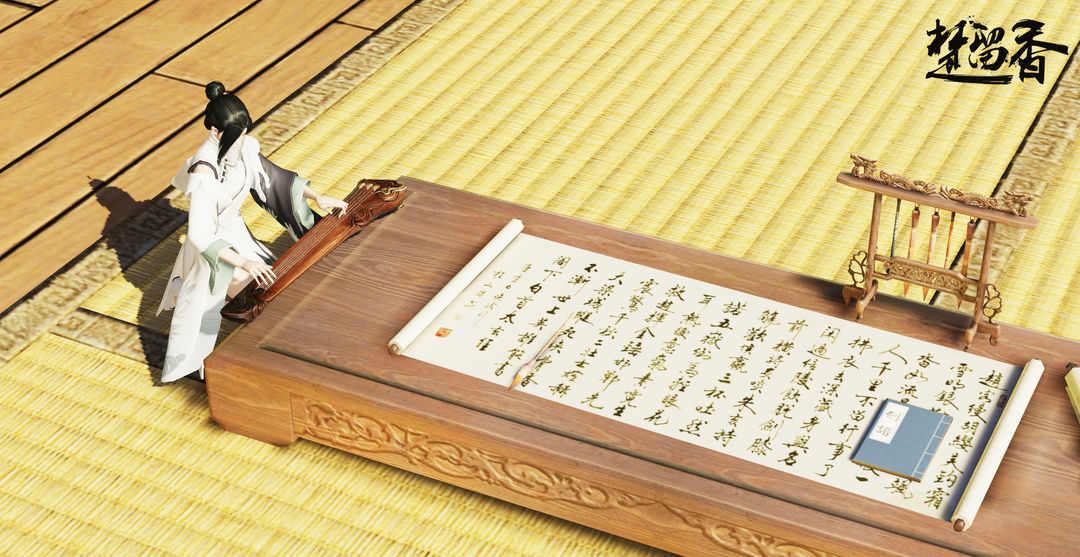 楚留香
趙客縵胡纓吳鉤霜
雪明銀
沓如流
人千里不留行事了
拂衣去深藏身與名
閑過信陵飲脫劍膝
前橫將炙啖朱亥持
觴勸侯嬴三杯吐然
諾五嶽倒為輕眼花
耳熱後意氣素霓生
救趙揮金槌邯鄲先
震驚千秋二壯士烜赫
大梁城縱死俠骨香
不慚世上英誰能書
閣下白首太玄經